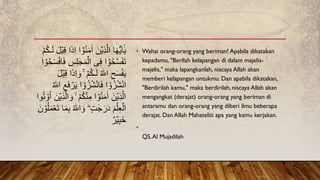 يٰٓاَيُّهَا الَّذِيْنَ اٰمَنُوْٓا اِذَا قِيْلَ لَكُمْ
تَفَسَّحُوْا فِى الْمَجٰلِسِ فَافْسَحُوْا
يَفْسَحِ اللّٰهُ لَكُمْۚ وَاِذَا قِيْلَ
انْشُزُوْا فَانْشُزُوْا يَرْفَعِ اللّٰهُ
الَّذِيْنَ اٰمَنُوْا مِنْكُمْۙ وَالَّذِيْنَ اُوْتُوا
الْعِلْمَ دَرَجٰتٍۗ وَاللّٰهُ بِمَا تَعْمَلُوْنَ
خَبِيْرٌ
• Wahai orang-orang yang beriman! Apabila dikatakan
kepadamu, "Berilah kelapangan di dalam majelis-
majelis," maka lapangkanlah, niscaya Allah akan
memberi kelapangan untukmu. Dan apabila dikatakan,
"Berdirilah kamu," maka berdirilah, niscaya Allah akan
mengangkat (derajat) orang-orang yang beriman di
antaramu dan orang-orang yang diberi ilmu beberapa
derajat. Dan Allah Mahateliti apa yang kamu kerjakan.
•
QS. Al Mujadilah